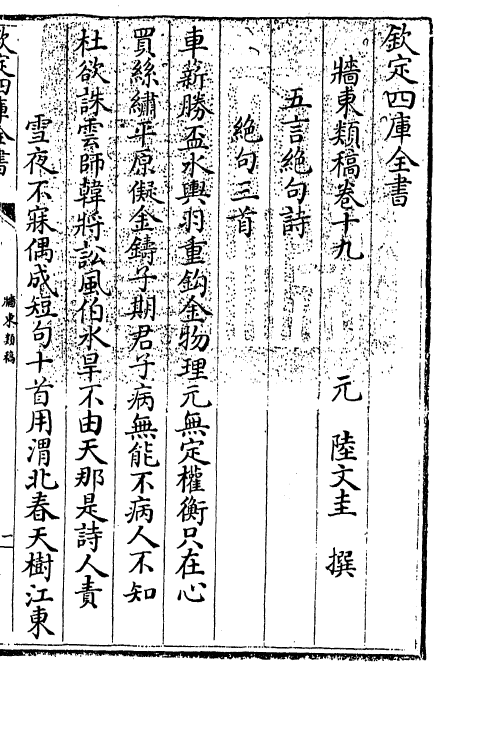 欽定四庫全書
牆東類稿卷十九
元 陸文圭 撰
五言絶句詩
絶句三首
車薪勝盃水輿羽重鈎金物理元無定權衡只在心
買絲繡平原儗金鑄子期君子病無能不病人不知
杜欲誅雲師韓將訟風伯水旱不由天那是詩人責
雪夜不寐偶成短句十首用渭北春天樹江東
欽定四庫全書
牆東類稿